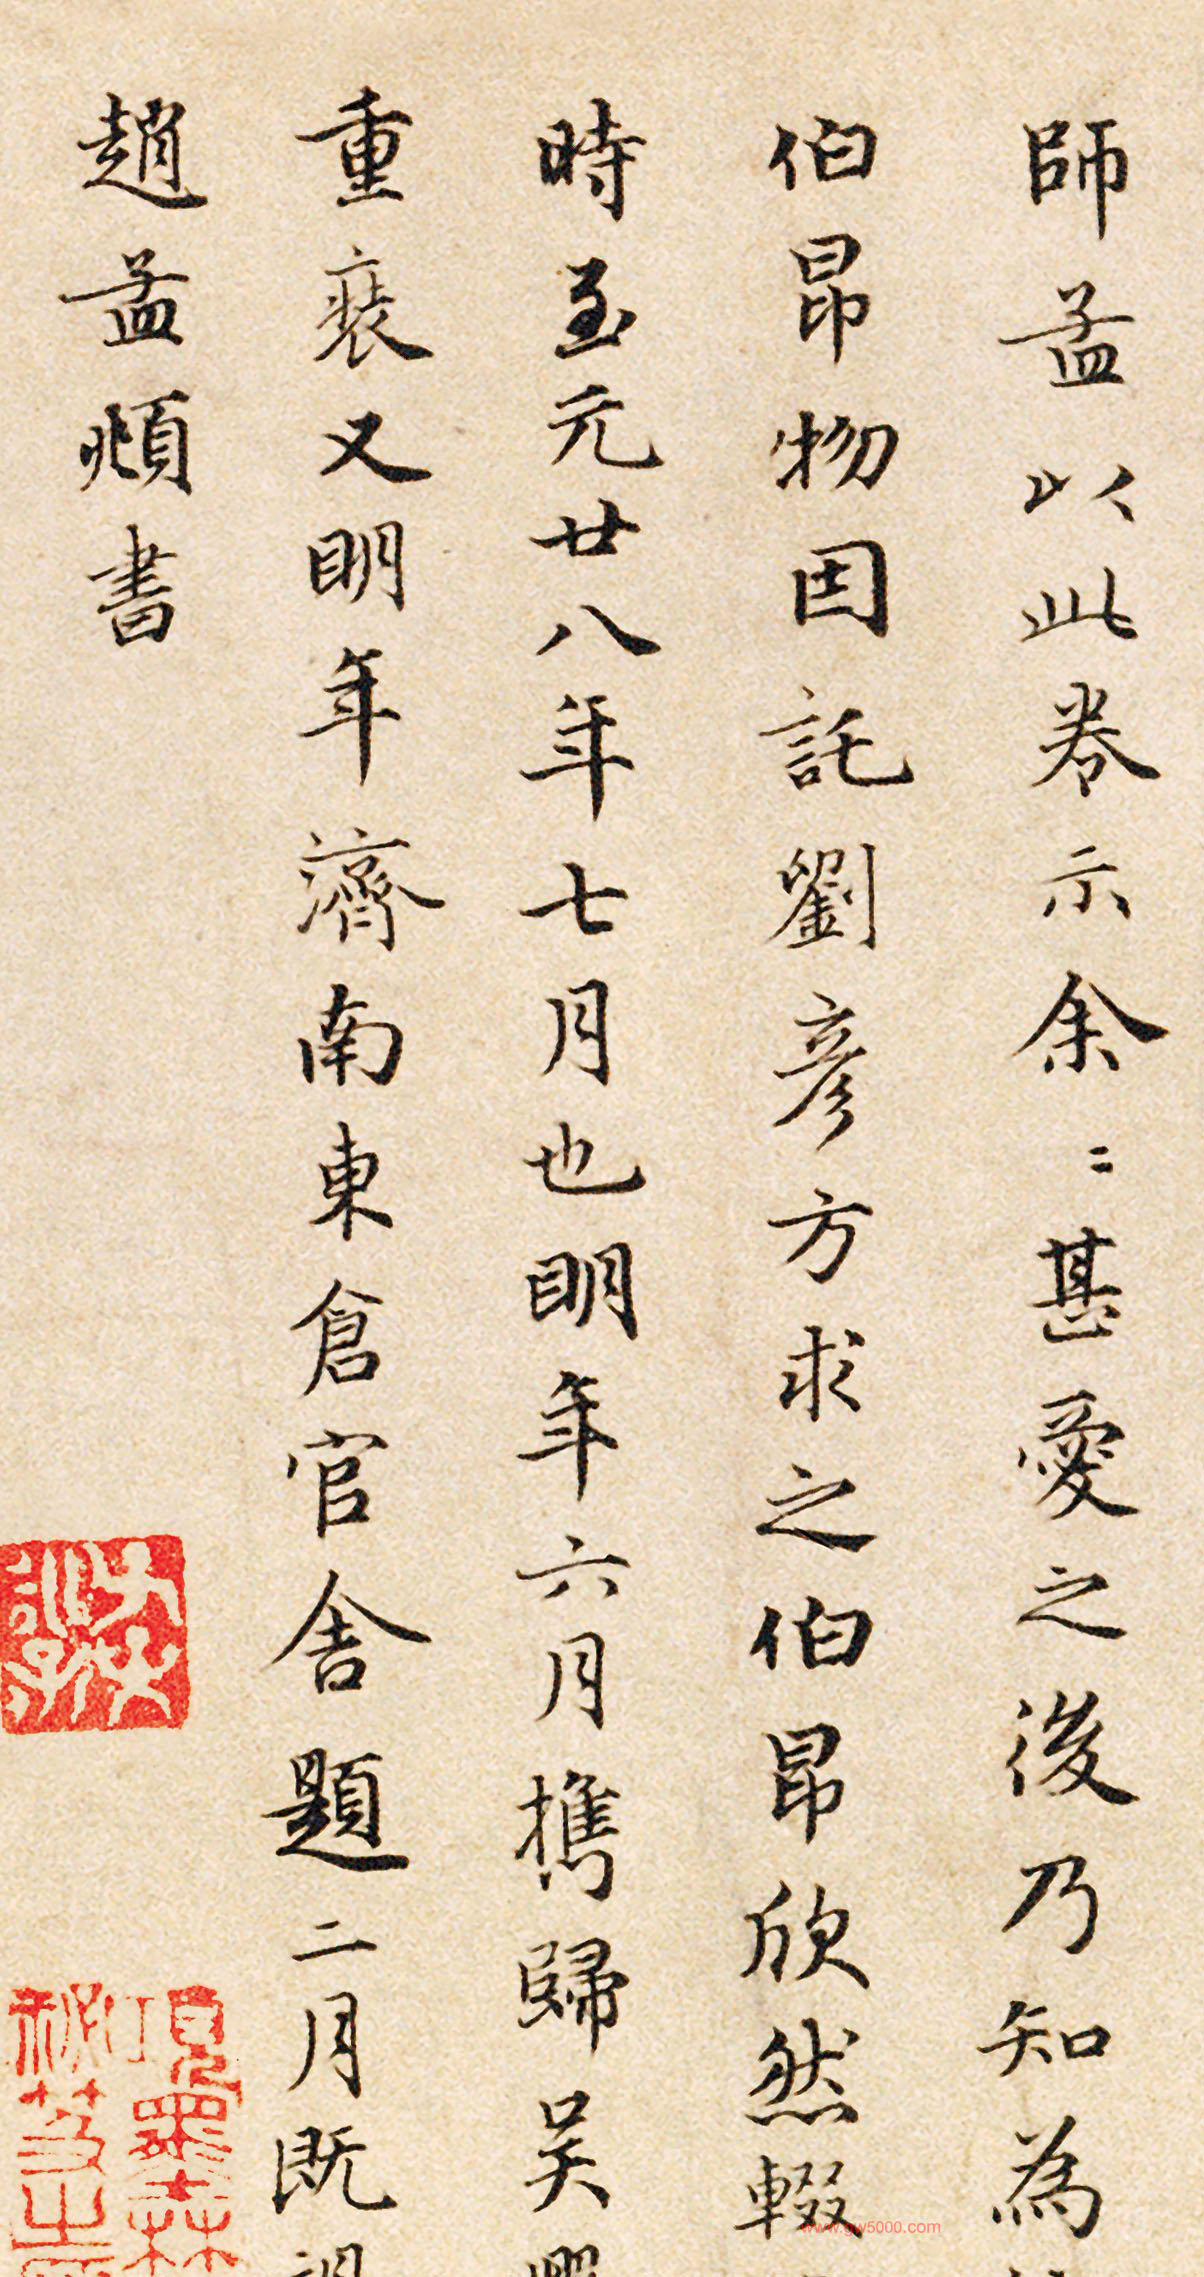 師孟以此卷示余〻甚愛之後乃知為
伯昂物因託劉彥方求之伯昂欣然輟
時至元廿八年七月也明年六月攜歸吴
重裝又明年濟南東倉官舍題二月既
趙孟頫書
項墨林
祕芨之
www.gw5000.com